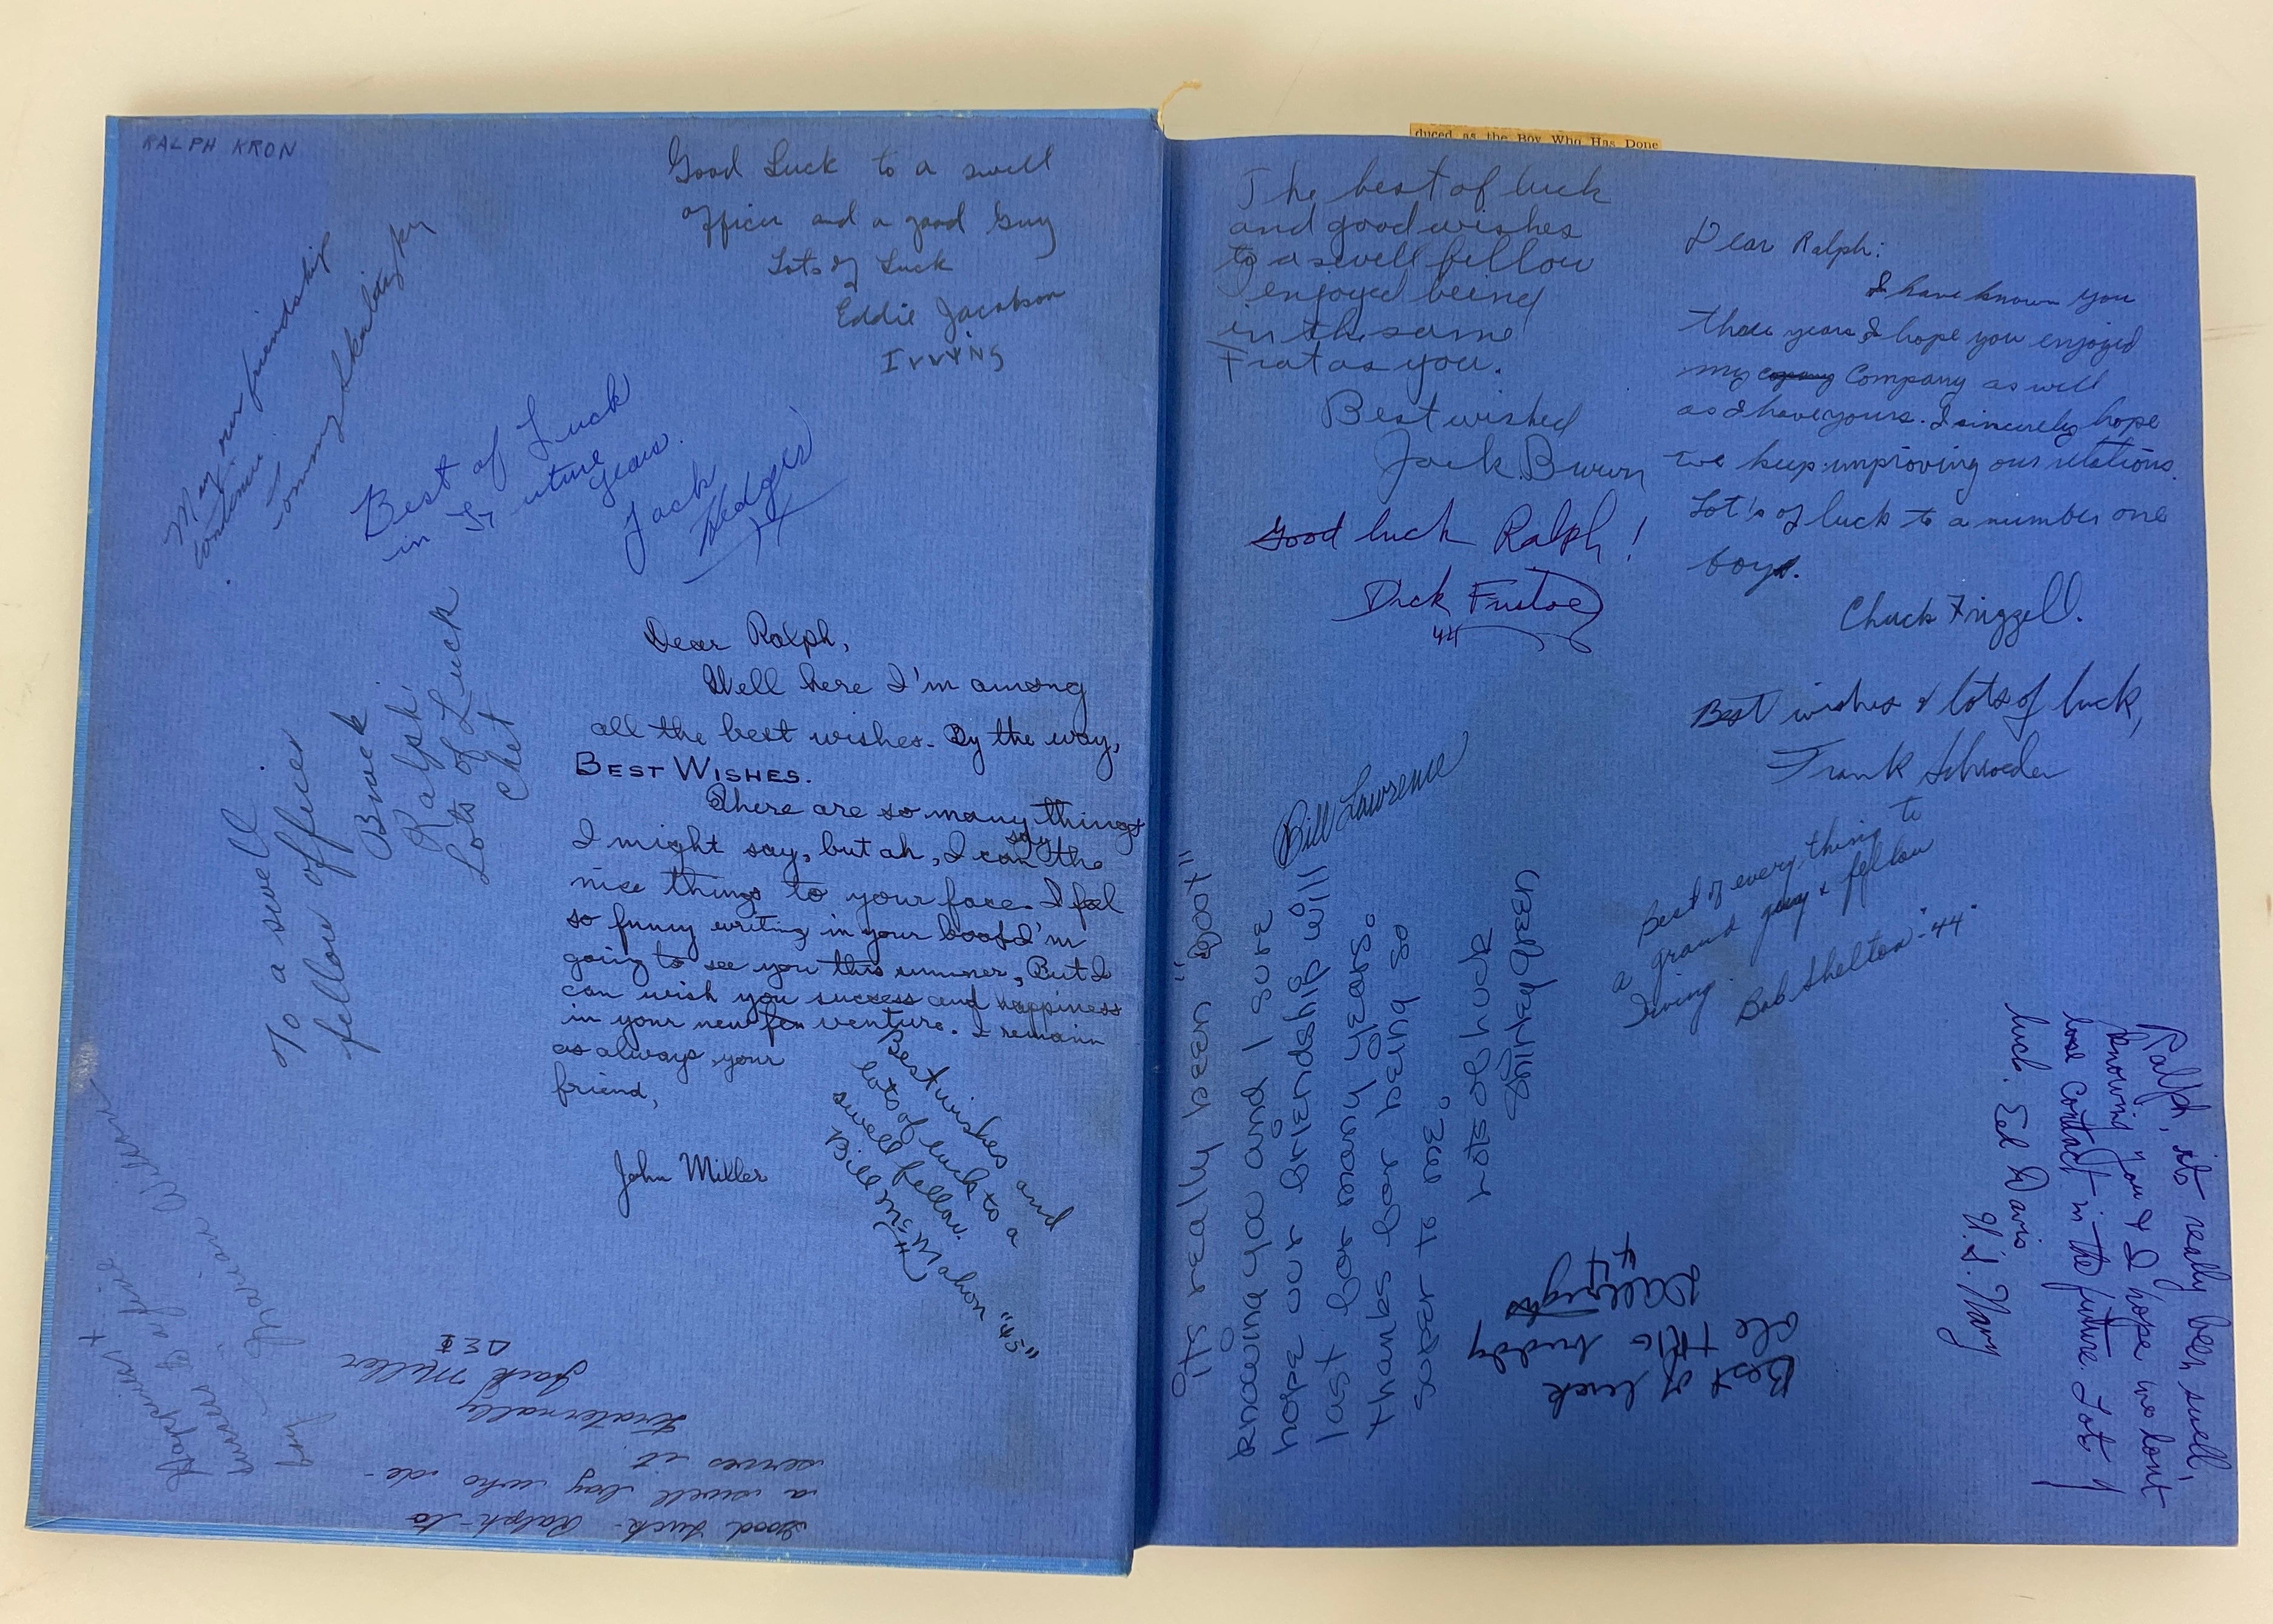 RALPH KRON
Good Luck to a swell
officer and a good guy
Lots of Luck
Eddie Jacobson
Irving
May our friendship
continue
Best of Luck
in Future
years.
Jack
Hedges
To a swell
fellow officer
Brock
Ralph
Lots of Luck
Chet
Dear Ralph,
Well here I'm among
all the best wishes. By the way,
BEST WISHES.
There are so many things
I might say, but ah, I can say the
nice things to your face. I feel
so funny writing in your book I'm
going to see you this summer. But I
can wish you success and happiness
in your new venture. I remain
as always your
friend,
John Miller
Best wishes and
lots of luck to a
swell fellow.
Bill McMahon "45"
Happiness +
success to a fine
boy
Marian Wilson
Good Luck - Ralph - to
a swell boy who de-
serves it
Fraternally
Jack Miller
ΔΣΦ
duced as the Boy Who Has Done
The best of luck
and good wishes
to a swell fellow
I enjoyed being
in the same
Frat as you.
Best wished
Jack
Good luck Ralph!
Dick
44
Dear Ralph:
I have known you
these years I hope you enjoyed
my Company as well
as I have yours. I sincerely hope
we keep improving our relations.
Lot's of luck to a number one
boy.
Chuck Frizzell.
Best wishes & lots of luck,
Frank Schroeder
Bill Lawrence
Best of everything to
a grand guy & fellow
Bob Shelton "44"
"It's really been "Root"
knowing you and I sure
hope our friendship will
last for many years.
thanks for being so
super to me.
Lots of Luck
Shirley Green
Best of luck
ole buddy
44
Ralph, its really been swell,
knowing you & I hope we dont
lose contact in the future. Lots of
luck. Ed Davis
U.S. Navy